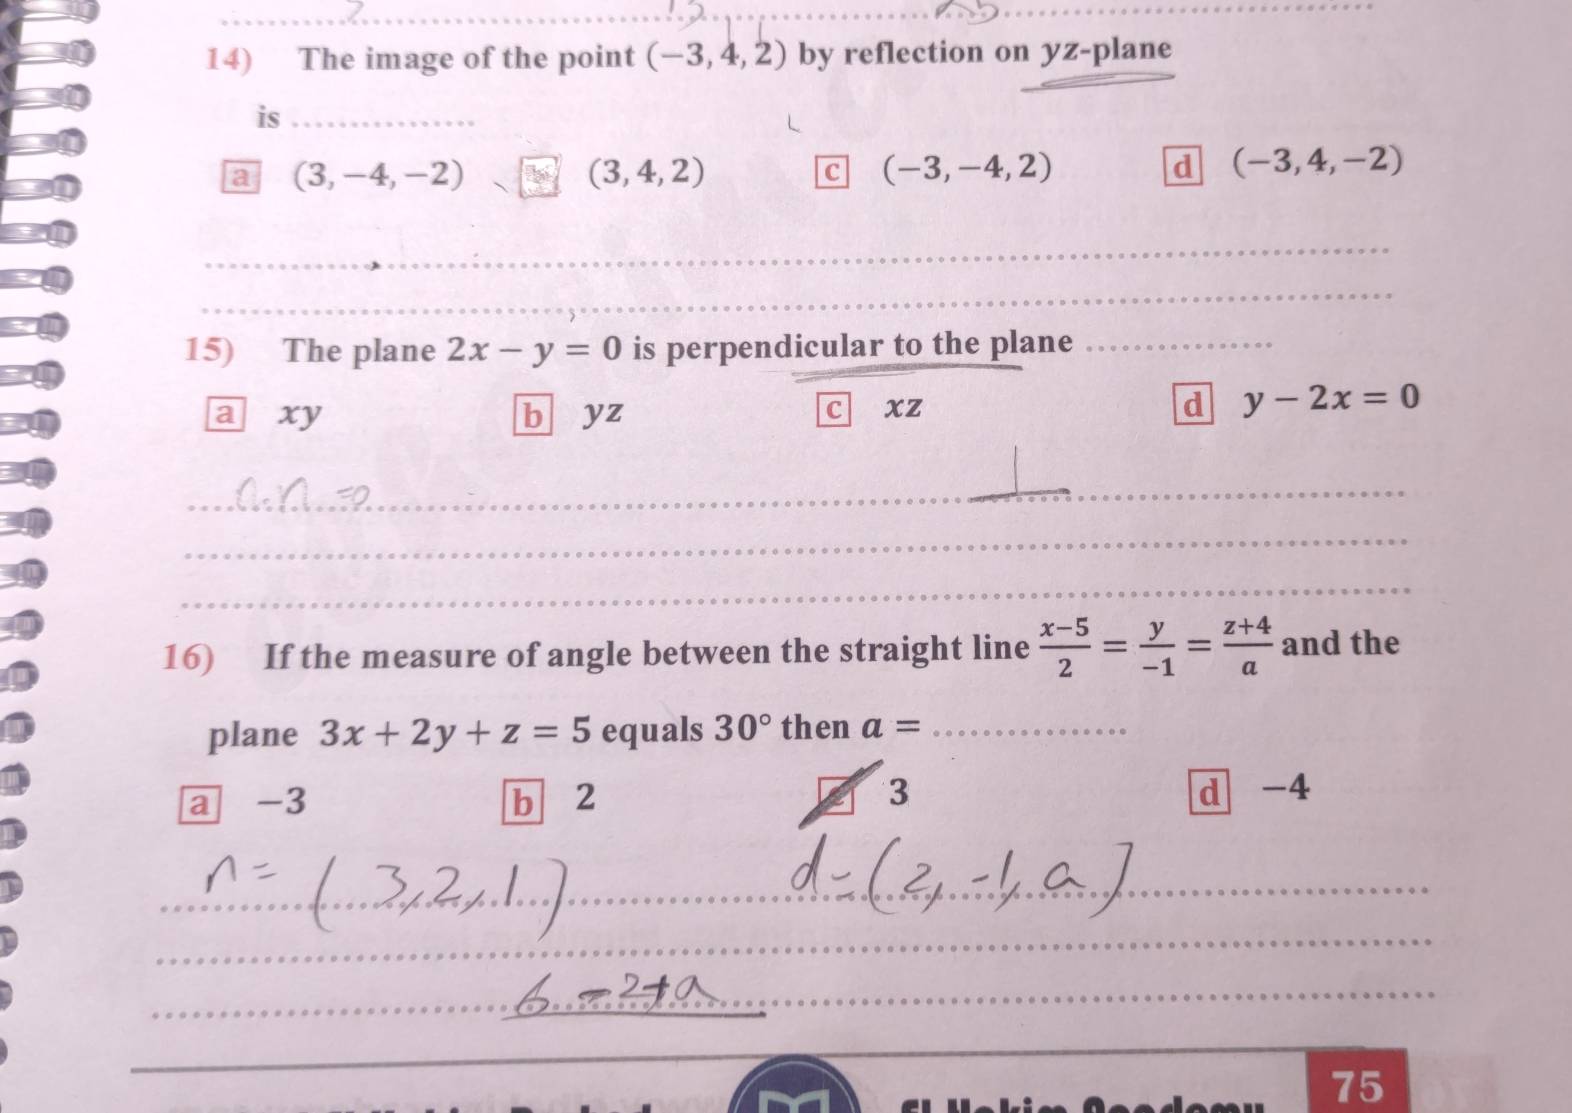 14) The image of the point (−3, 4, 2) by reflection on yz-plane
is ................
a (3, −4, −2) (3, 4, 2) c (−3, −4, 2) d (−3, 4, −2)
15) The plane 2x − y = 0 is perpendicular to the plane ................
a xy b yz c xz d y − 2x = 0
n.n=0
16) If the measure of angle between the straight line \frac{x-5}{2} = \frac{y}{-1} = \frac{z+4}{a} and the
plane 3x + 2y + z = 5 equals 30° then a = ................
a −3 b 2 c 3 d −4
n = (3,2,1) d=(2,-1,a)
6-2+a
75